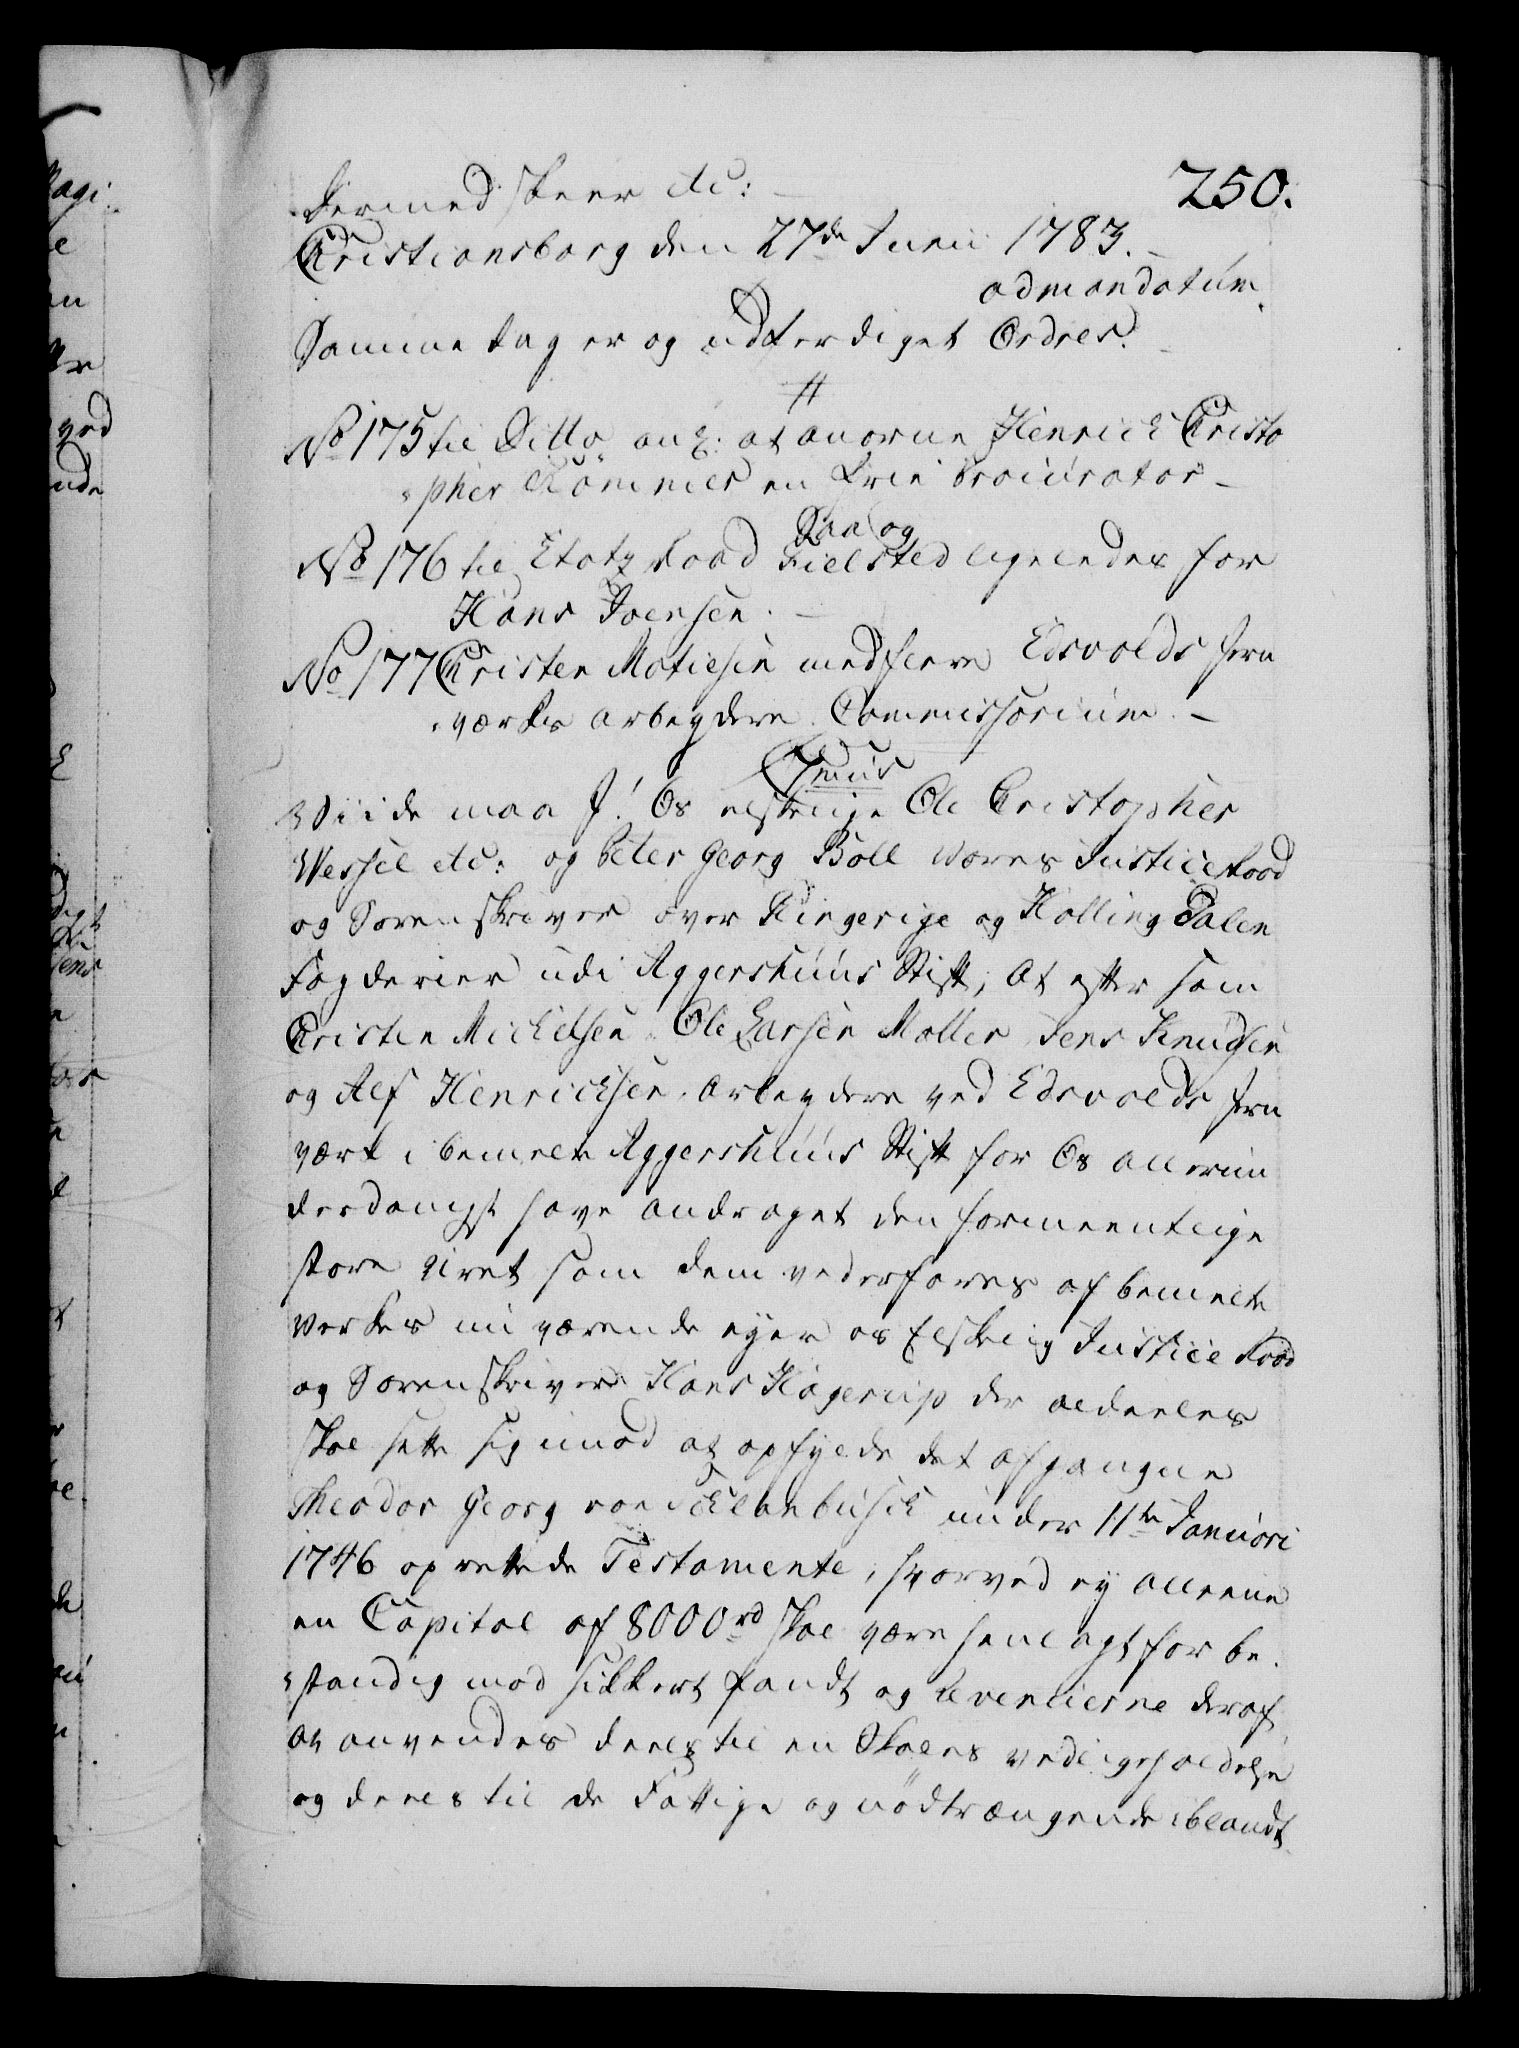 250.
dermed skeer etc:
Christiansborg den 27de Junii 1783.
ad mandatum
Samme dag er og udferdiget Ordres.
No 175 til Ditto anl: at antage Henrich Christo
pher Rømmer en Frie Procurator
No 176 til Etatz Raad Dan og Fielsted ligeledes for
Hans Joensen.
No 177 Christen Matiesen med fleere Edsvolds Jern
værks arbeydere Commissorium.
C 7mus
Viide maa I! Os elskelige Ole Christopher
Wessel etc: og Peter Georg Böll Vores Justice Raad
og Sorenskriver over Ringerige og Halling Dalen
Fogderier udi Aggershuus Stift, at efter som
Christen Michelsen, Ole Larsen Moller, Jens Knudsen
og Alf Henrichsen, arbeydere ved Edsvolds Jern
værk i bemelte Aggershuus Stift for Os allerun
derdanigst have andraget den formeentlige
store Uret som dem vederfares af bemelte
Verkes nu værende eyer os Elskelig Justice Raad
og Sorenskriver Hans Hagerup der aldeeles
skal sette sig imod at opfylde det afgangne
Theodor Georg von Schlanbusch under 11te Januari
1746 oprettede Testamente, hvorved ey alleene
en Capital af 8000 rd skal være henlagt for be
standig mod sikkert Pandt og Revenuerne deraf
at anvendes deels til en Skoles vedligeholdelse
og deels til de Fattige og nødtrængende iblandt